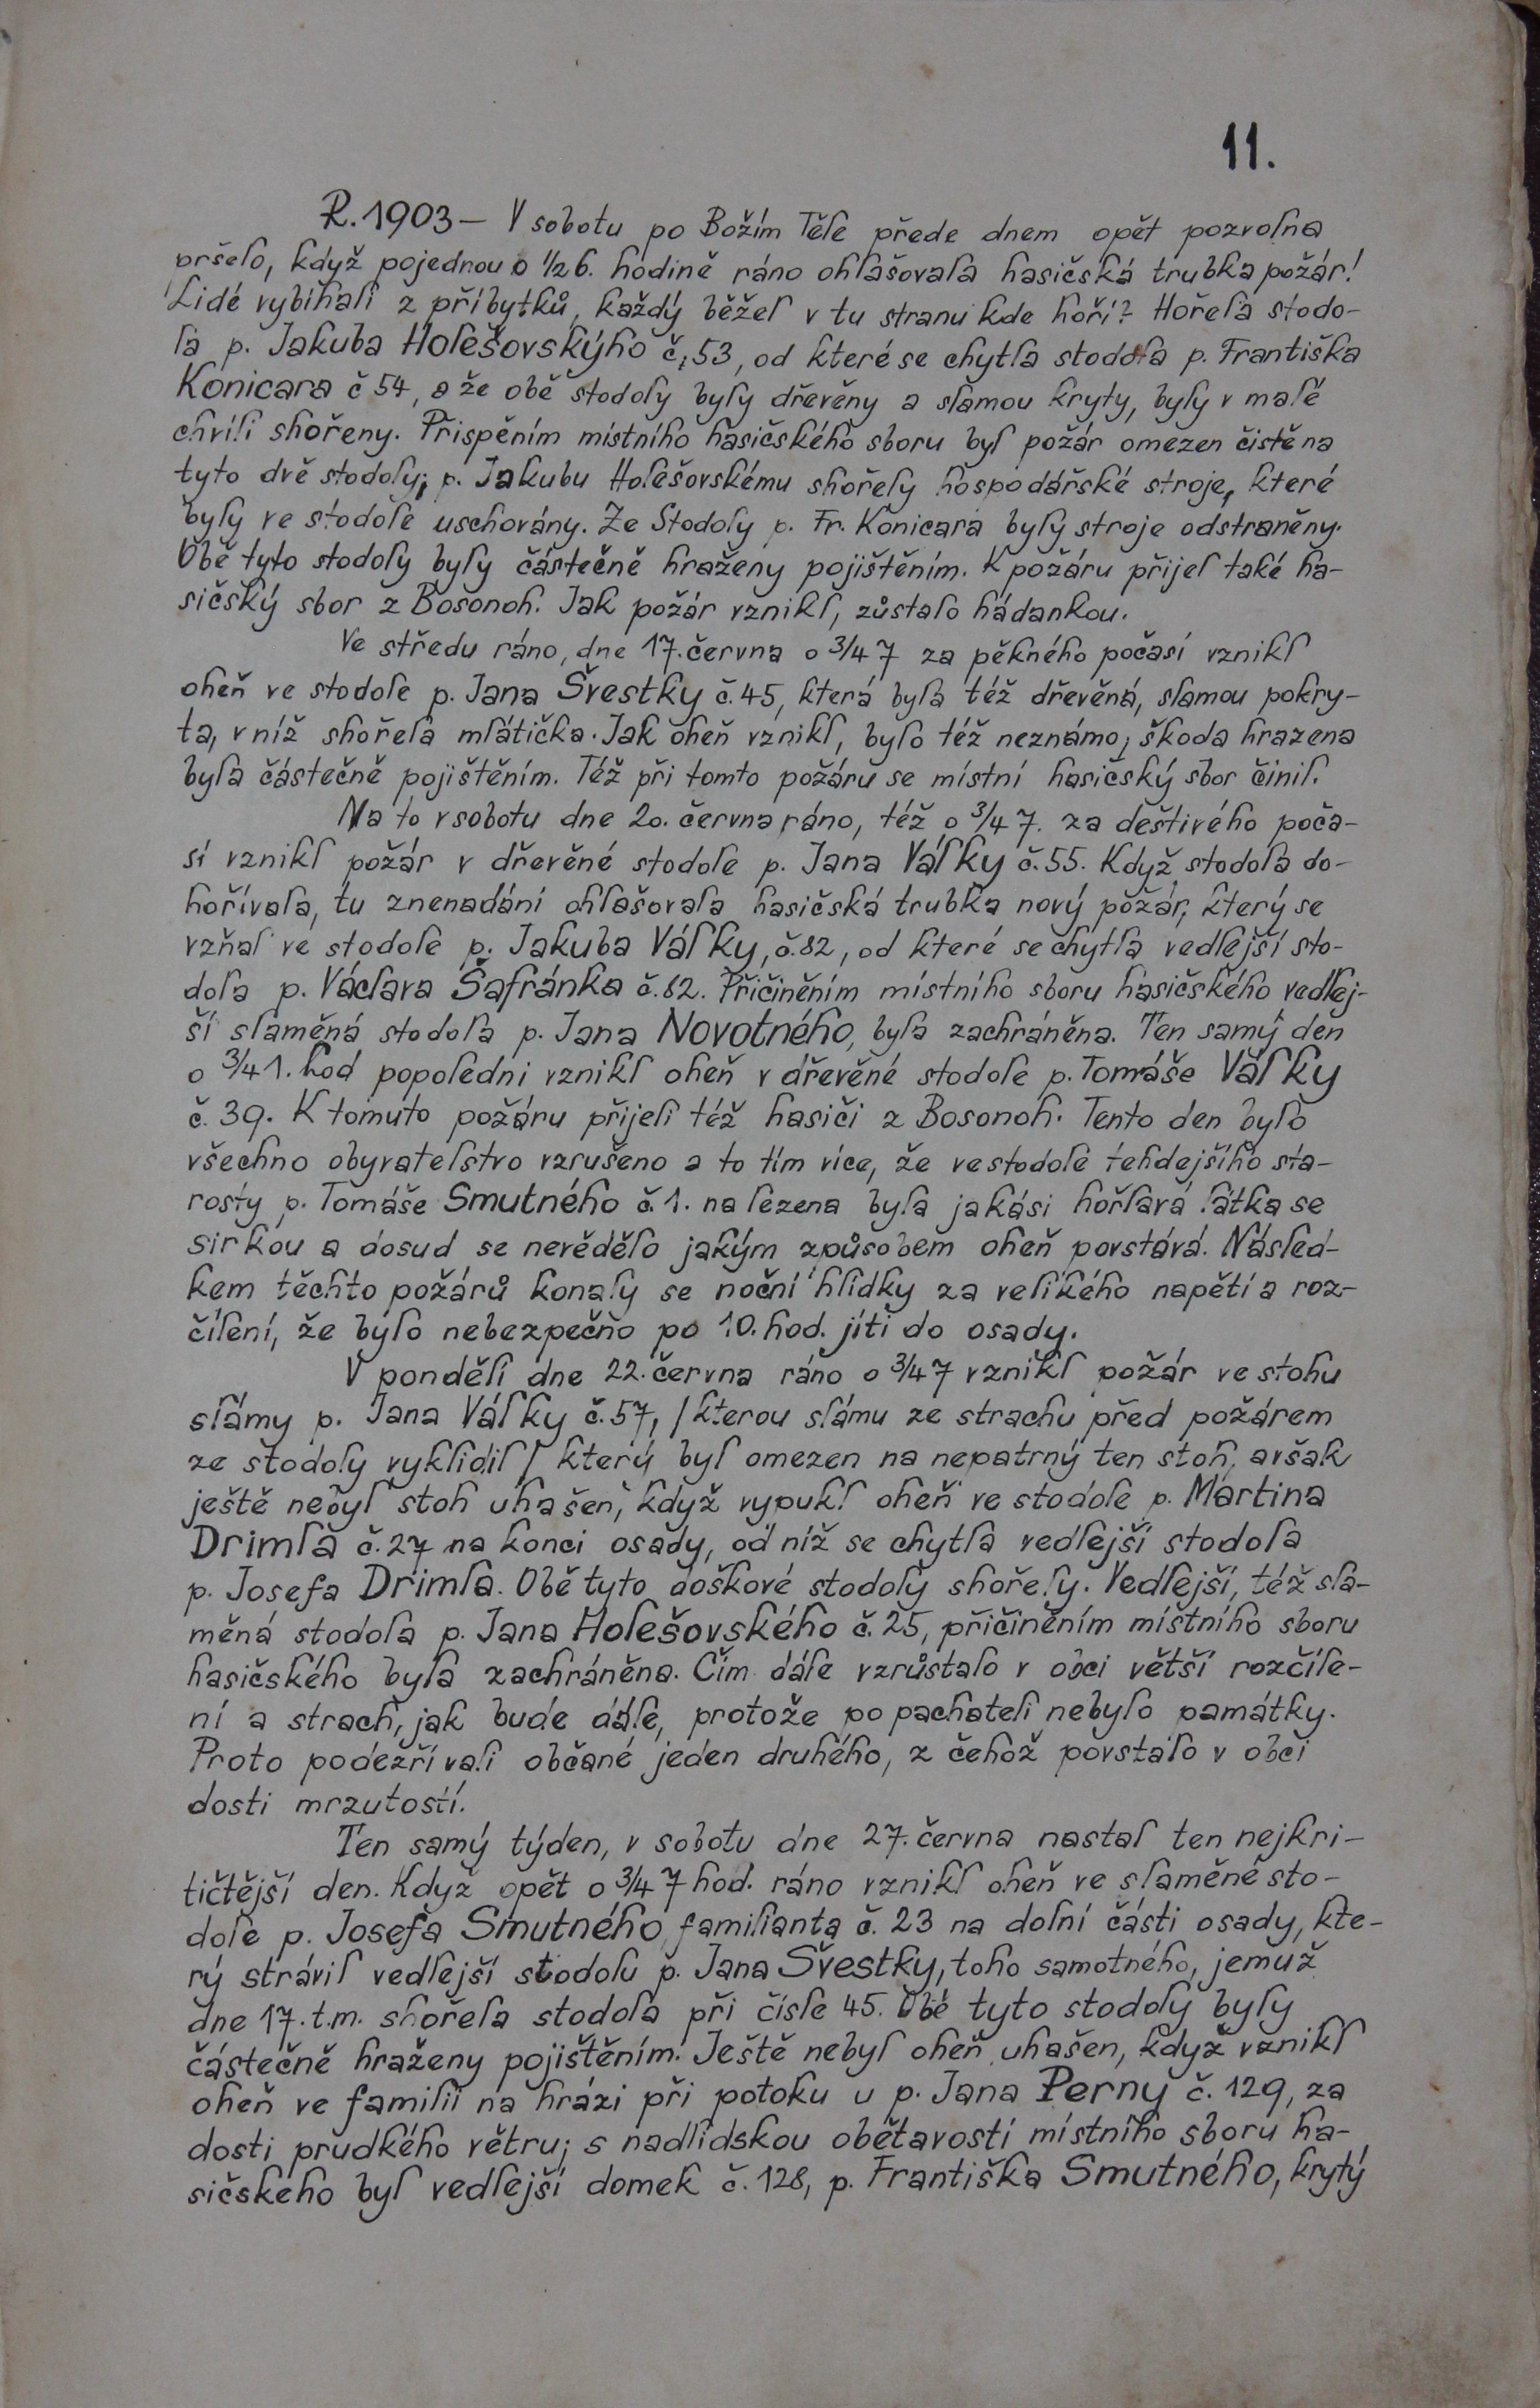 11.
R. 1903 – V sobotu po Božím Těle přede dnem opět pozvolna
pršelo, když pojednou o 1/2 6. hodině ráno ohlašovala hasičská trubka požár!
Lidé vybíhali z příbytků, každý běžel v tu stranu kde hoří? Hořela stodo-
la p. Jakuba Holešovskýho č. 53, od které se chytla stodola p. Františka
Konicara č 54, a že obě stodoly byly dřevěny a slamou kryty, byly v malé
chvíli shořeny. Přispěním místního hasičského sboru byl požár omezen čistě na
tyto dvě stodoly; p. Jakubu Holešovskému shořely hospodářské stroje, které
byly ve stodole uschovány. Ze Stodoly p. Fr. Konicara byly stroje odstraněny.
Obě tyto stodoly byly částečně hraženy pojištěním. K požáru přijel také ha-
sičský sbor z Bosonoh. Jak požár vznikl, zůstalo hádankou.
Ve středu ráno, dne 17. června o 3/4 7 za pěkného počasí vznikl
oheň ve stodole p. Jana Švestky č. 45, která byla též dřevěná, slamou pokry-
ta, v níž shořela mlátička. Jak oheň vznikl, bylo též neznámo; škoda hrazena
byla částečně pojištěním. Též při tomto požáru se místní hasičský sbor činil.
Na to v sobotu dne 20. června ráno, též o 3/4 7. za deštivého poča-
sí vznikl požár v dřevěné stodole p. Jana Války č. 55. Když stodola do-
hořívala, tu znenadání ohlašovala hasičská trubka nový požár, který se
vzňal ve stodole p. Jakuba Války, č. 82, od které se chytla vedlejší sto-
dola p. Václava Šafránka č. 62. Přičiněním místního sboru hasičského vedlej-
ší slaměná stodola p. Jana Novotného, byla zachráněna. Ten samý den
o 3/4 1. hod popoledni vznikl oheň v dřevěné stodole p. Tomáše Války
č. 39. K tomuto požáru přijeli též hasiči z Bosonoh. Tento den bylo
všechno obyvatelstvo vzrušeno a to tím více, že ve stodole tehdejšího sta-
rosty p. Tomáše Smutného č. 1. nalezena byla jakási hořlavá látka se
sirkou a dosud se nevědělo jakým způsobem oheň povstává. Násled-
kem těchto požárů konaly se noční hlídky za velikého napětí a roz-
čílení, že bylo nebezpečno po 10. hod. jíti do osady.
V pondělí dne 22. června ráno o 3/4 7 vznikl požár ve stohu
slámy p. Jana Války č. 57, / kterou slámu ze strachu před požárem
ze stodoly vyklidil / který byl omezen na nepatrný ten stoh, avšak
ještě nebyl stoh uhašen, když vypukl oheň ve stodole p. Martina
Drimla č. 27 na konci osady, od níž se chytla vedlejší stodola
p. Josefa Drimla. Obě tyto doškové stodoly shořely. Vedlejší, též sla-
měná stodola p. Jana Holešovského č. 25, přičiněním místního sboru
hasičského byla zachráněna. Čím dále vzrůstalo v obci větší rozčíle-
ní a strach, jak bude dále, protože po pachateli nebylo památky.
Proto podezřívali občané jeden druhého, z čehož povstalo v obci
dosti mrzutostí.
Ten samý týden, v sobotu dne 27. června nastal ten nejkri-
tičtější den. Když opět o 3/4 7 hod. ráno vznikl oheň ve slaměné sto-
dole p. Josefa Smutného, familianta č. 23 na dolní části osady, kte-
rý strávil vedlejší stodolu p. Jana Švestky, toho samotného, jemuž
dne 17. t.m. shořela stodola při čísle 45. Obě tyto stodoly byly
částečně hraženy pojištěním. Ještě nebyl oheň uhašen, když vznikl
oheň ve familii na hrázi při potoku u p. Jana Perny č. 129, za
dosti prudkého větru; s nadlidskou obětavostí místního sboru ha-
sičskeho byl vedlejší domek č. 128, p. Františka Smutného, krytý